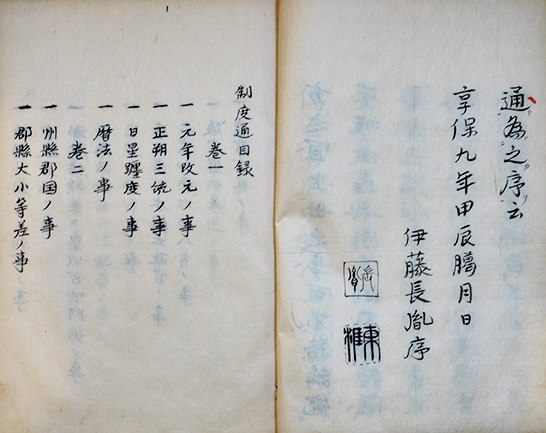 通為之序云
享保九年甲辰臈月日
伊藤長胤序
長胤
東涯
制度通目録
巻一
一 元年改元ノ事
一 正朔三統ノ事
一 日星躔度ノ事
一 暦法ノ事
巻二
一 州縣郡国ノ事
一 郡縣大小等差ノ事